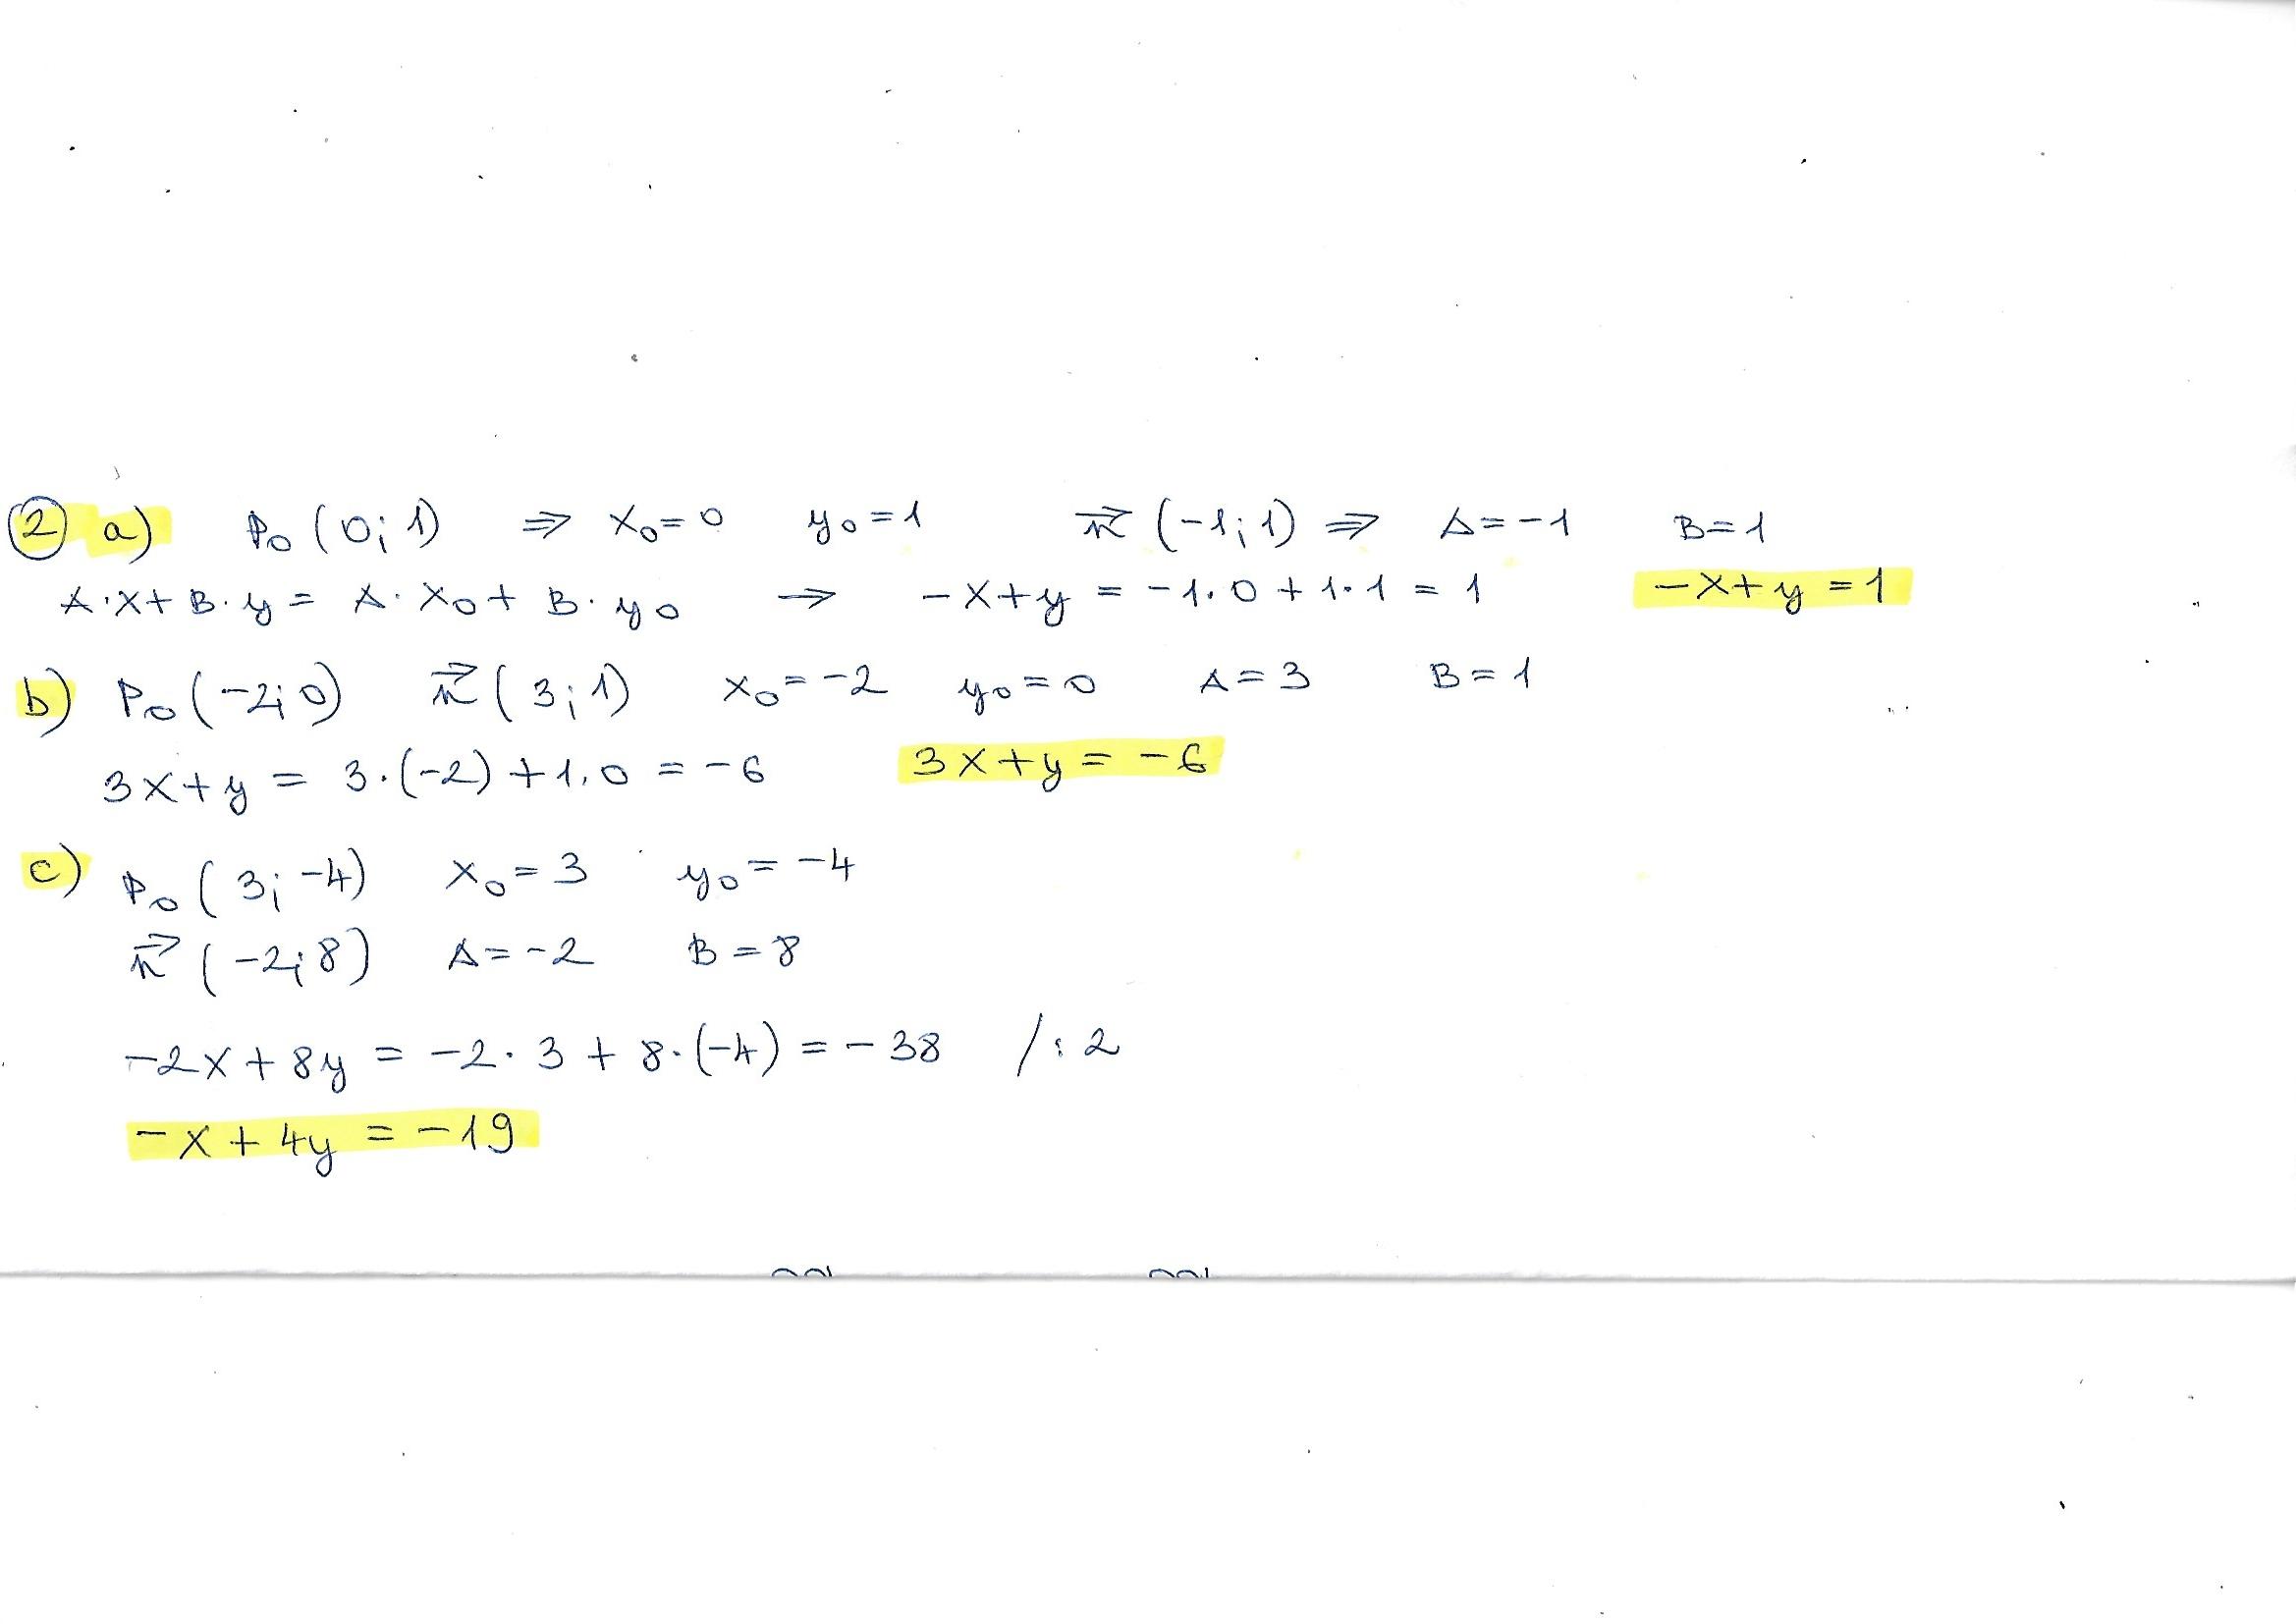 ② a) P₀(0;1) ⇒ x₀=0 y₀=1 n⃗(-1;1) ⇒ A=-1 B=1
A·x+B·y = A·x₀+B·y₀ → -x+y = -1·0+1·1 = 1 -x+y=1
b) P₀(-2;0) n⃗(3;1) x₀=-2 y₀=0 A=3 B=1
3x+y = 3·(-2)+1·0 = -6 3x+y=-6
c) P₀(3;-4) x₀=3 y₀=-4
n⃗(-2;8) A=-2 B=8
-2x+8y = -2·3+8·(-4) = -38 /:2
-x+4y = -19